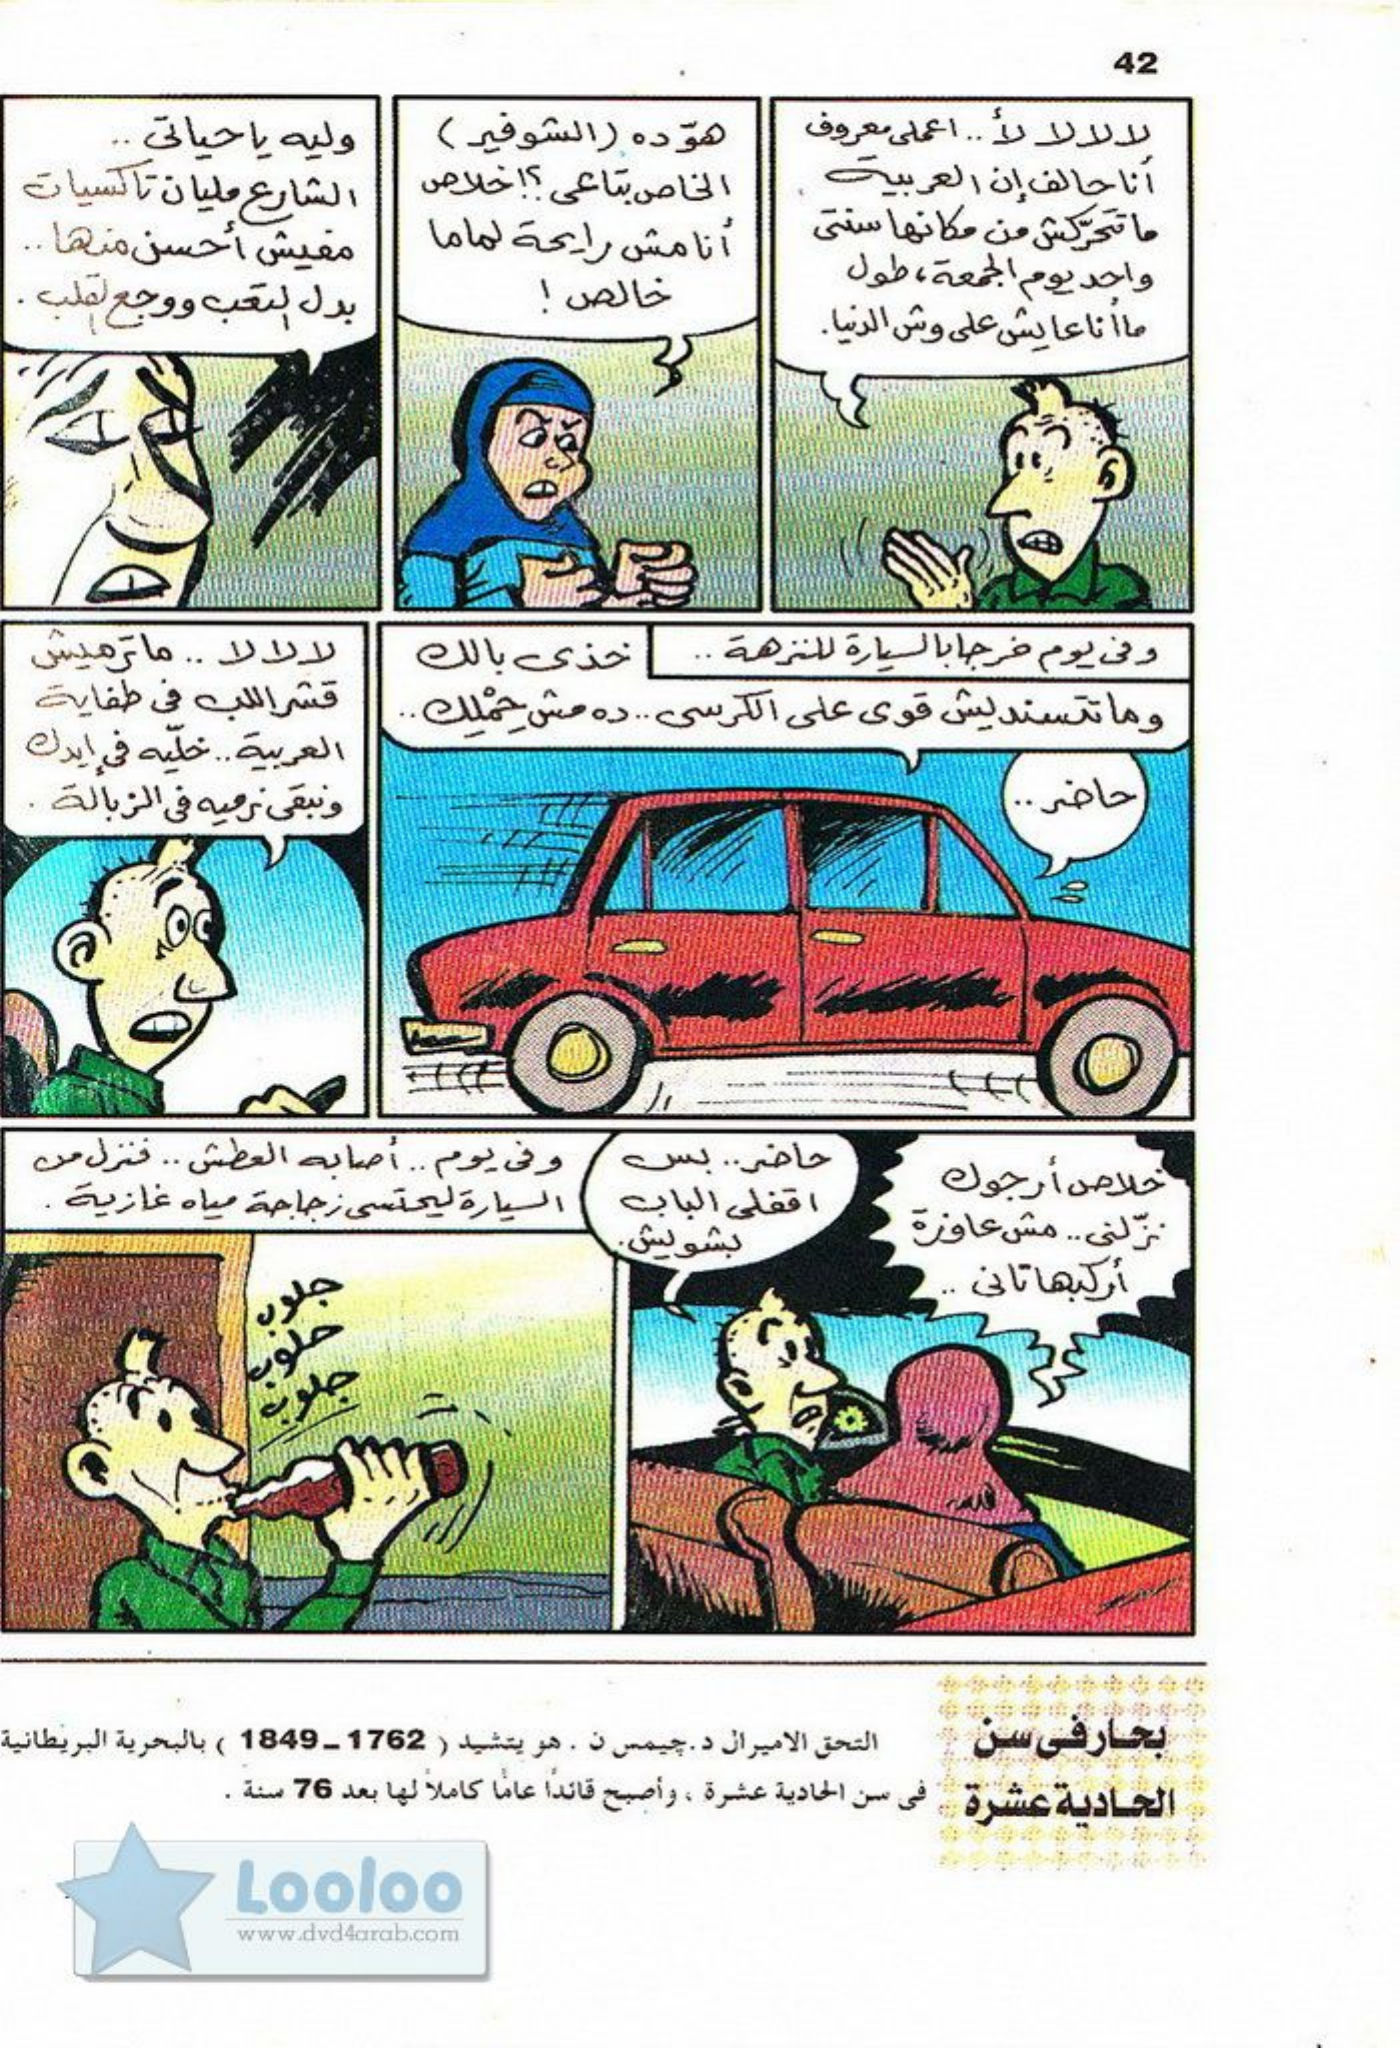 42
لا لا لا لأ.. اعملى معروف
أنا حالف إن العربية
ما تتحرّكش من مكانها سنتى
واحد يوم الجمعة، طول
ما أنا عايش على وش الدنيا.
هوّ ده (الشوفير)
الخاص بتاعى؟! خلاص
أنا مش رايحة لماما
خالص!
وليه يا حياتى ..
الشارع مليان تاكسيات
مفيش أحسن منها..
بدل التعب ووجع القلب.
وفى يوم خرجا بالسيارة للنزهة ..
خذى بالك
وما تتسنديش قوى على الكرسى.. ده مش حِمْلِك..
حاضر..
لا لا لا .. ما ترميش
قشر اللب فى طفاية
العربية.. خلّيه فى إيدك
ونبقى نرميه فى الزبالة.
خلاص أرجوك
نزّلنى.. مش عاوزة
أركبها تانى ..
حاضر.. بس
اقفلى الباب
بشويش.
وفى يوم.. أصابه العطش.. فنزل من
السيارة ليحتسى زجاجة مياه غازية.
جلوب
جلوب
جلوب
بحار فى سن
الحادية عشرة
التحق الاميرال د.چيمس ن . هو يتشيد ( 1762 ـ 1849 ) بالبحرية البريطانية
فى سن الحادية عشرة ، وأصبح قائدًا عامًا كاملاً لها بعد 76 سنة .
Looloo
www.dvd4arab.com